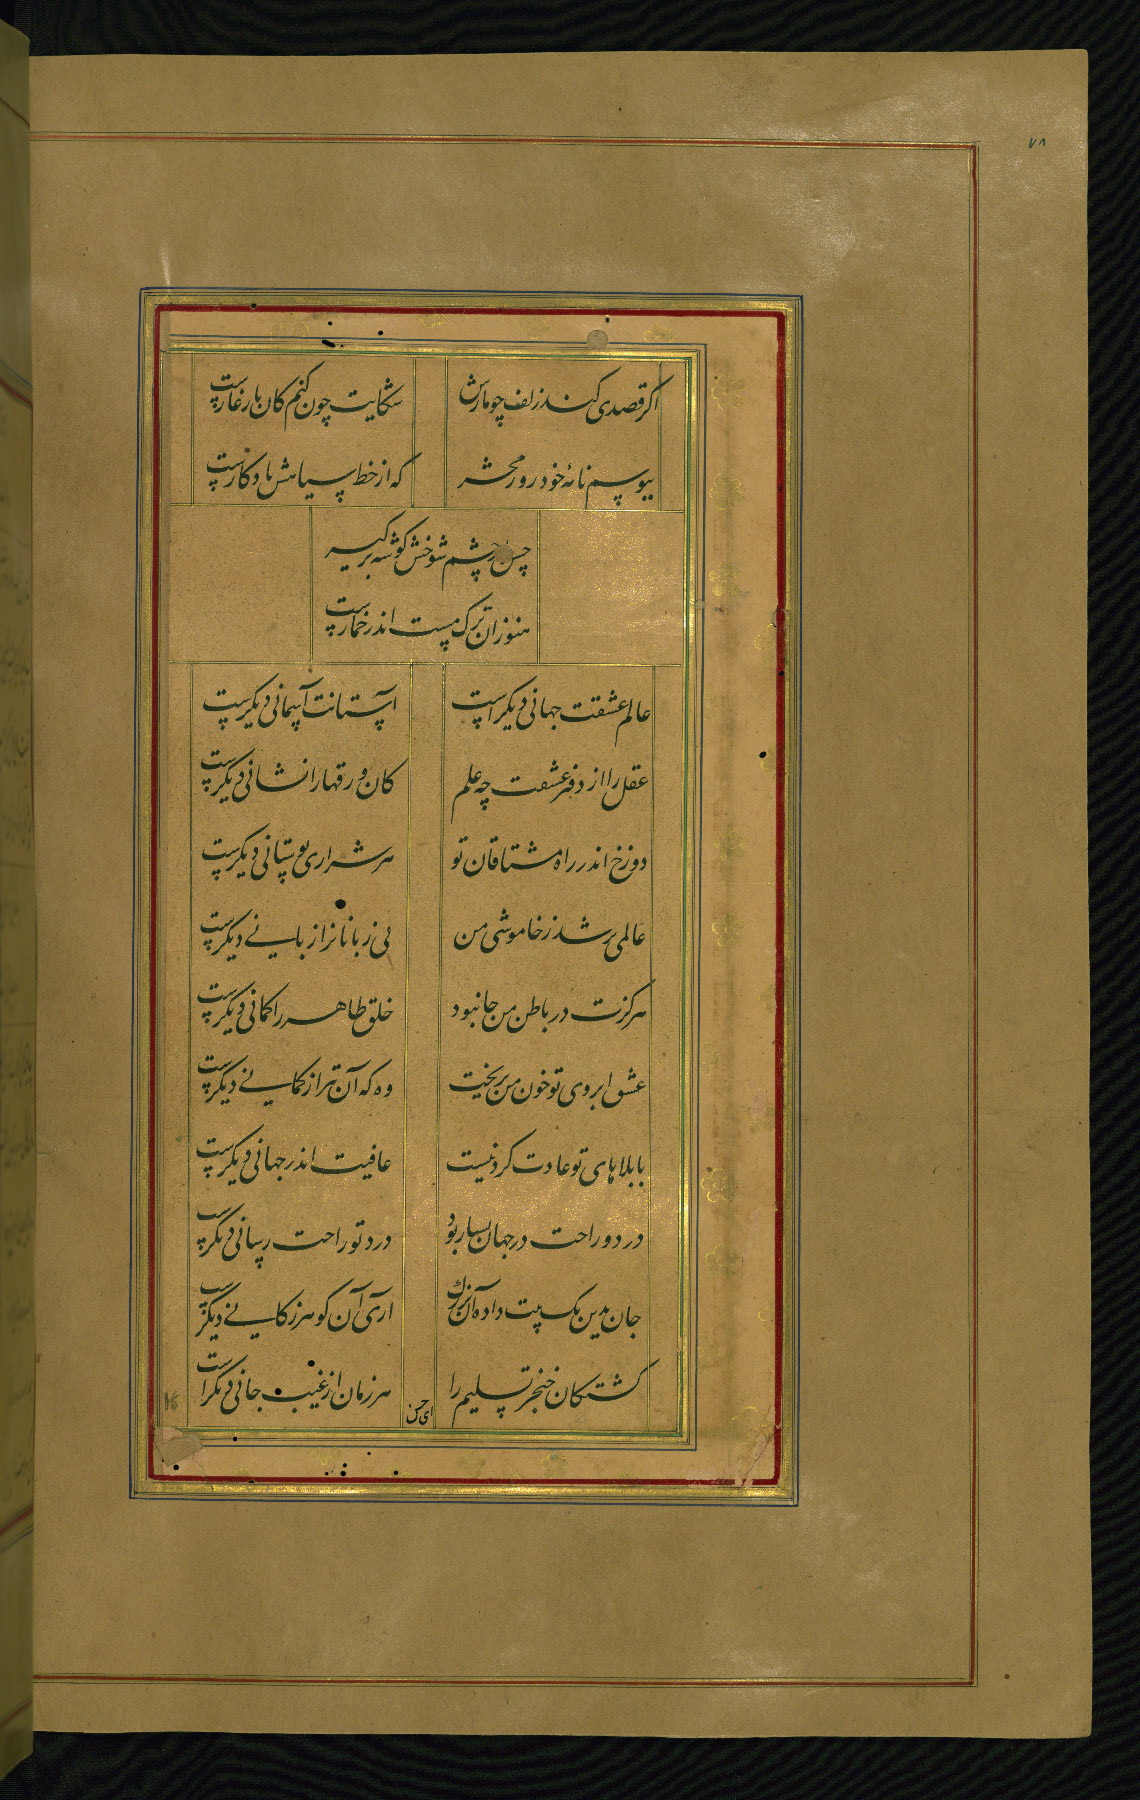 ٧٨
اگر قصدی کند زلف چو مارش شکایت چون کنم کان یار غارست
ببوسم نامهٔ خود روز محشر که از خط سیاهش یادگارست
حسن از چشم شوخش گوشه برگیر
هنوز آن ترک مست اندر خمارست
عالم عشقت جهانی دیگر است آستانت آسمانی دیگرست
عقل را از دفتر عشقت چه علم کان ورقها را نشانی دیگرست
دوزخ اندر راه مشتاقان تو هر شراری بوستانی دیگرست
عالمی پر شد ز خاموشی من بی زبانانرا زبانی دیگرست
هرگزت در باطن من جا نبود خلق ظاهر را گمانی دیگرست
عشق ابروی تو خون من بریخت وه که آن تیر از کمانی دیگرست
با بلاهای تو عادت کردنیست عافیت اندر جهانی دیگرست
درد و راحت در جهان بسیار بود درد تو راحت رسانی دیگرست
جان بدین یک بیت داده آن بزرگ آری آن گوهر ز کانی دیگرست
کشتگان خنجر تسلیم را هر زمان از غیب جانی دیگر است
ای حسن